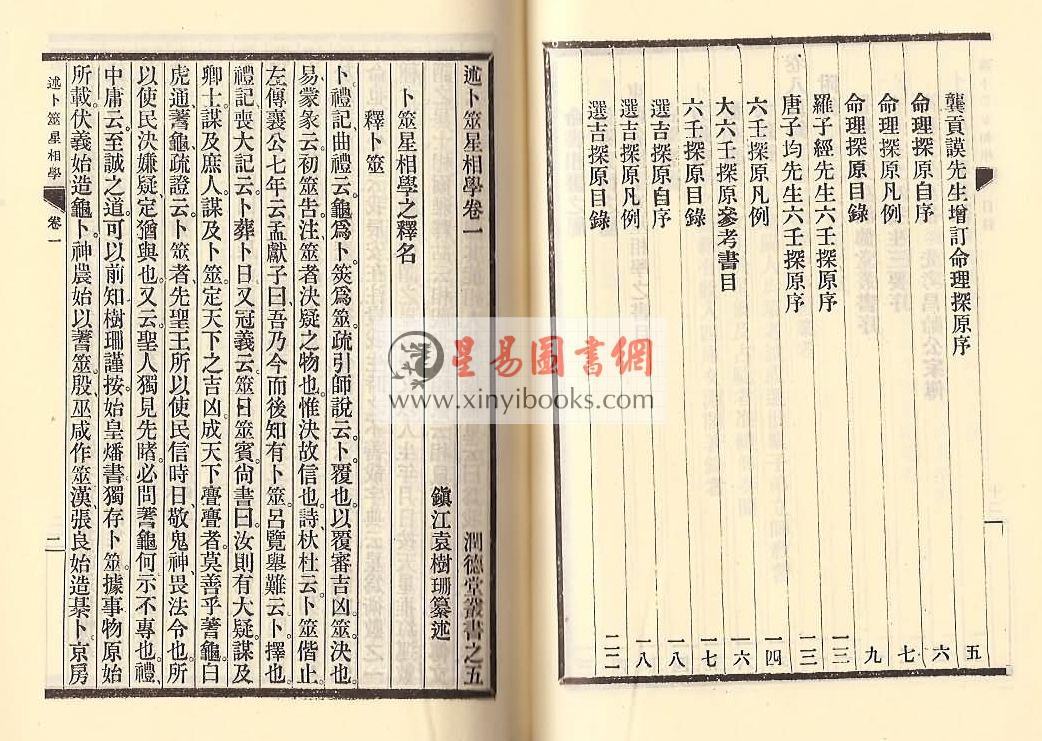 龔貢謨先生增訂命理探原序 五
命理探原自序 六
命理探原凡例 七
命理探原目錄 九
羅子經先生六壬探原序 一三
唐子均先生六壬探原序 一三
六壬探原凡例 一四
大六壬探原參考書目 一六
六壬探原目錄 一七
選吉探原自序 一八
選吉探原凡例 一八
選吉探原目錄 二二
述卜筮星相學卷一 潤德堂叢書之五
卜筮星相學之釋名 鎮江袁樹珊纂述
釋卜筮
卜禮記曲禮云。龜爲卜。筴爲筮。疏引師說云。卜覆也。以覆審吉凶。筮決也。
易蒙彖云。初筮吿。注筮者決疑之物也。惟決故信也。詩杕杜云。卜筮偕止。
左傳襄公七年云。孟獻子曰。吾乃今而後知有卜筮。呂覽舉難云。卜擇也。
禮記喪大記云。卜葬卜日。又冠義云。筮日筮賓。尙書曰。汝則有大疑。謀及
卿士。謀及庶人。謀及卜筮。定天下之吉凶。成天下亹亹者。莫善乎蓍龜。白
虎通蓍龜疏證云。卜筮者。先聖王所以使民信時日。敬鬼神。畏法令也。所
以使民決嫌疑。定猶與也。又云。聖人獨見先睹。必問蓍龜何。示不專也。禮
中庸云。至誠之道。可以前知。樹珊謹按。始皇燔書。獨存卜筮。據事物原始
所載。伏義始造龜卜。神農始以蓍筮。殷巫咸作筮。漢張良始造棊卜。京房
述卜筮星相學 卷一 一
星易圖書網
www.xinyibooks.com